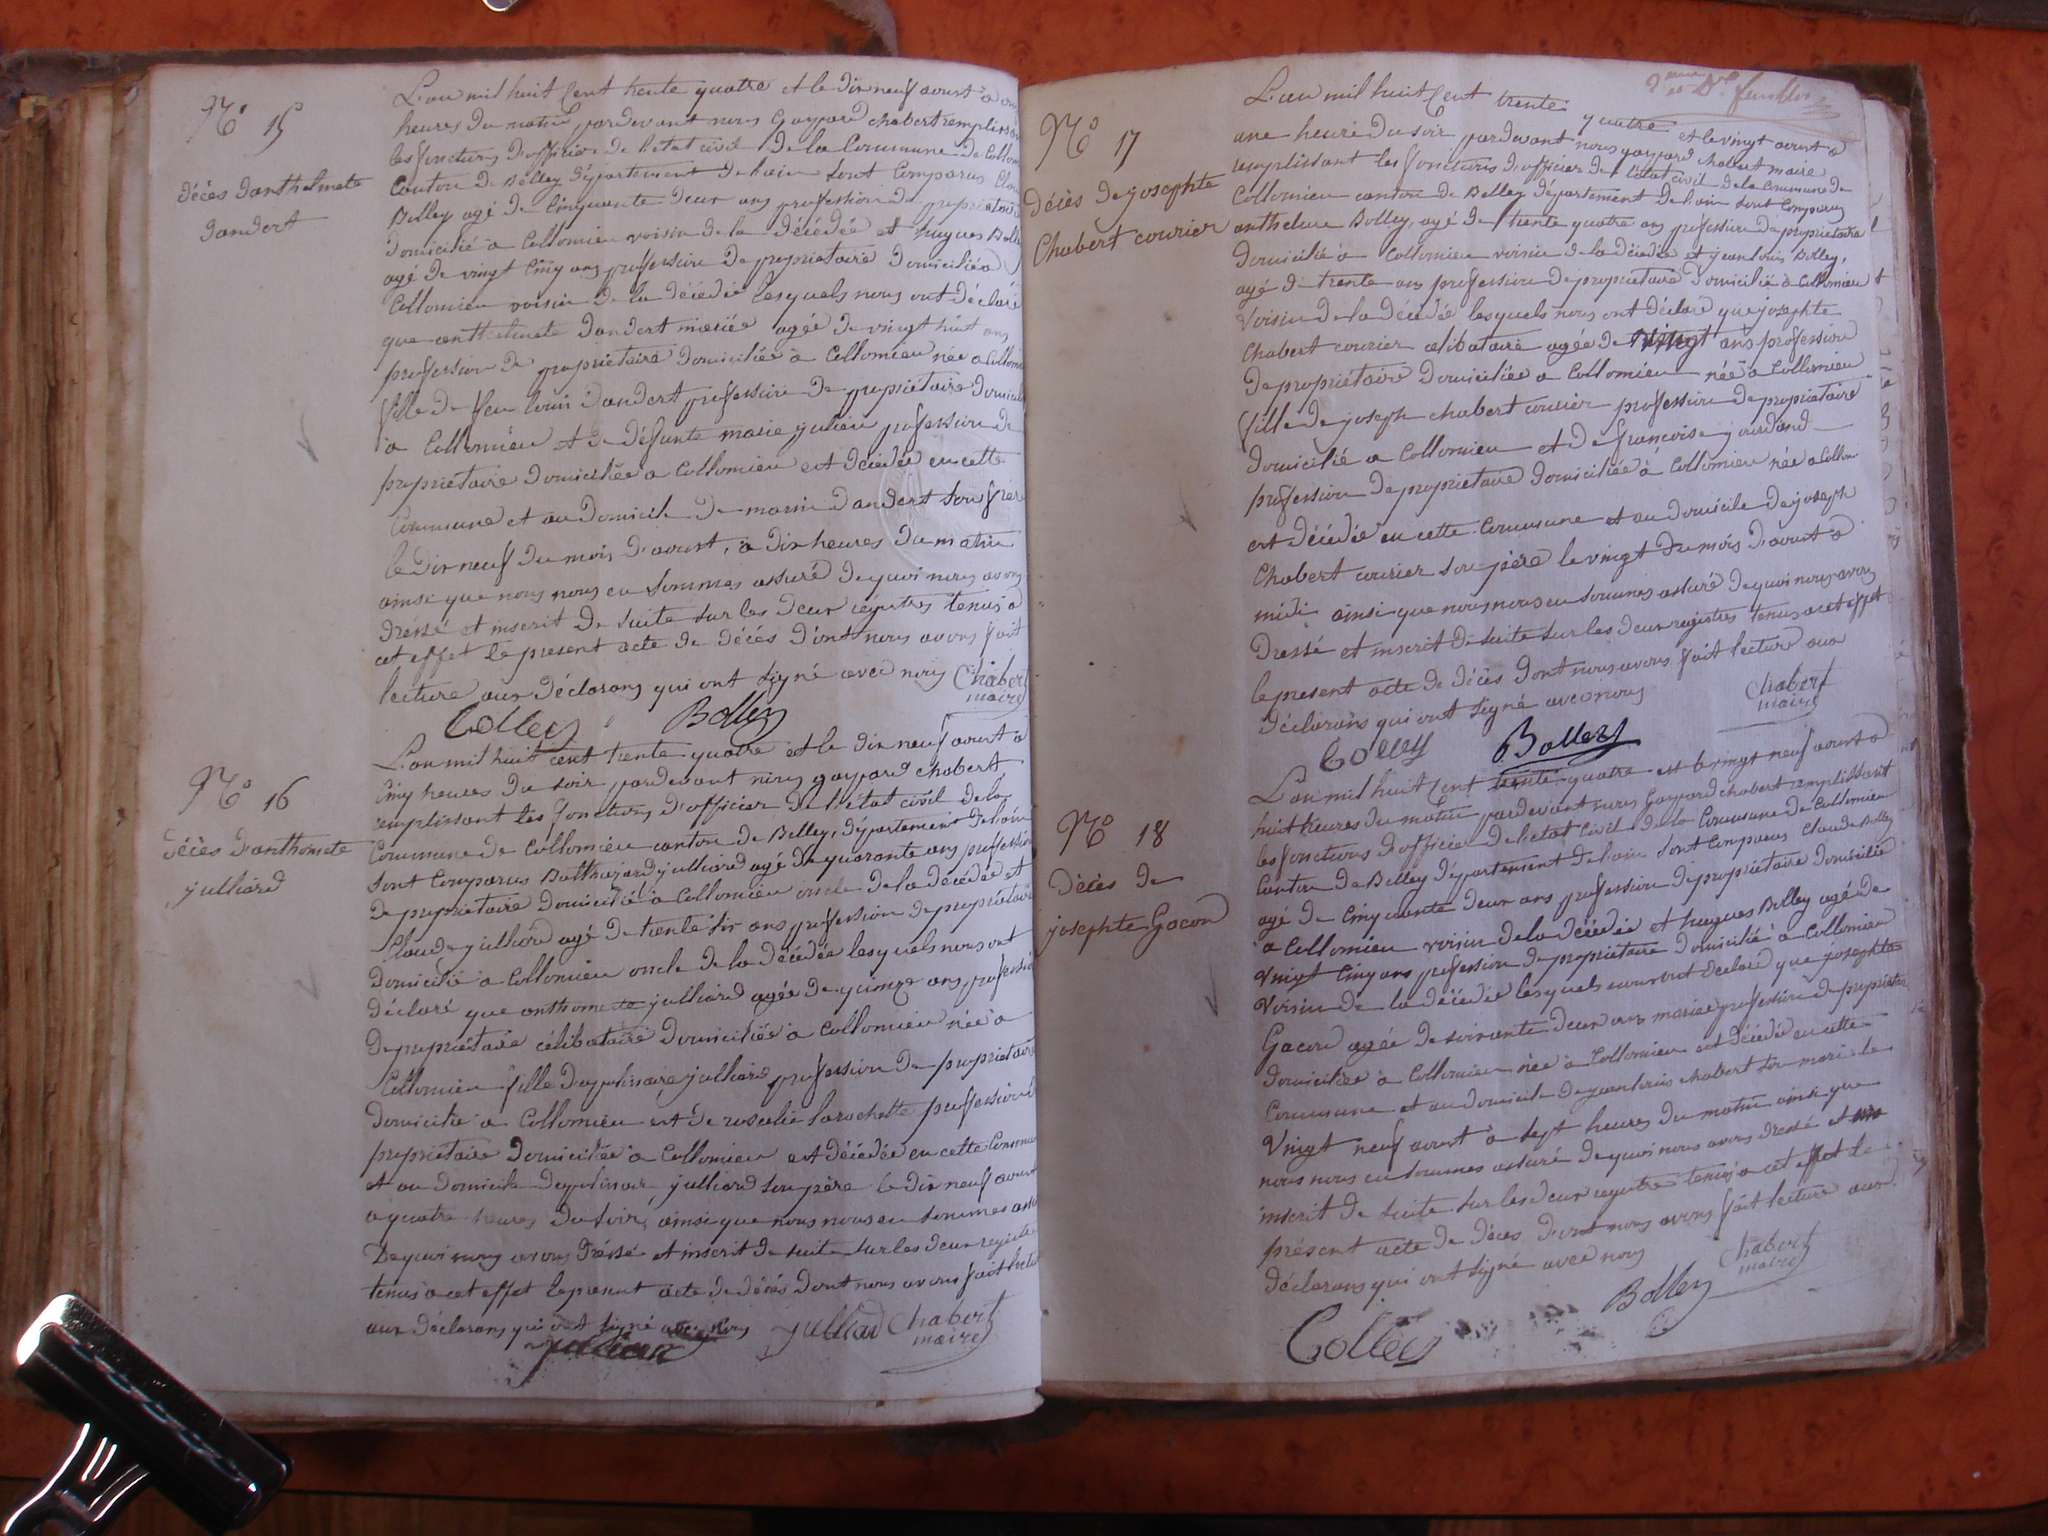 N° 15
décès danthelmete
dandert
L'an mil huit cent trente quatre et le dix neuf aoust à
heures du matin pardevant nous Gaspard chabert remplissant
les fonctions d'officier de l'état civil de la Commune de Collomieu
Canton de Belley département de l'ain sont Comparus
Bolley agé de Cinquante deux ans profession de propriétaire
domicilié à Collomieu voisin de la décédée et hugues Bolley
agé de vingt Cinq ans profession de propriétaire domicilié a
Collomieu voisin de la décédée lesquels nous ont déclaré
que anthelmete dandert mariée agée de vingt huit ans
profession de propriétaire domiciliée à Collomieu née a Collomieu
fille de feu louis dandert profession de propriétaire domicilié
a Collomieu et de défunte marie julien profession de
propriétaire domiciliée a Collomieu est décédée en cette
Commune et au domicile de marin dandert son frère
le dix neuf du mois d'aoust, à dix heures du matin
ainsi que nous nous en sommes assuré de quoi nous avons
dressé et inscrit de suite sur les deux régistres tenus a
cet effet le present acte de décès dont nous avons fait
lecture aux déclarans qui ont signé avec nous Chabert
maire
Bolley
N° 16
décès d'anthomete
julliard
L'an mil huit cent trente quatre et le dix neuf aoust à
Cinq heures du soir pardevant nous gaspard chabert
remplissant les fonctions d'officier de l'état civil de la
Commune de Collomieu canton de Belley, département de l'ain
sont Comparus Balthazard julliard agé de quarante ans profession
de propriétaire domicilié à Collomieu oncle de la décédée et
Claude julliard agé de trente six ans profession de propriétaire
domicilié à Collomieu oncle de la décédée lesquels nous ont
déclaré que anthomete julliard agée de quinze ans profession
de propriétaire célibataire domiciliée à Collomieu née a
Collomieu fille d'apolinaire julliard profession de propriétaire
domicilié a Collomieu et de rosalie larochette profession de
propriétaire domiciliée a Collomieu est décédée en cette Commune
et au domicile dapolinaire julliard son père le dix neuf aoust
a quatre heures du soir, ainsi que nous nous en sommes assuré
De quoi nous avons dréssé et inscrit de suite sur les deux registres
tenus a cet effet le present acte de décès dont nous avons fait lecture
aux déclarans qui ont signé avec nous julliard Chabert
maire
N° 17
décès de josephte
Chabert courier
L'an mil huit Cent trente quatre et le vingt aoust a
une heure du soir pardevant nous gaspard chabert maire
remplissant les fonctions d'officier de l'état civil de la Commune de
Collomieu canton de Belley département de l'ain sont Comparus
anthelme Bolley agé de trente quatre ans profession de propriétaire
domicilié à Collomieu voisin de la décédée et jean louis Bolley,
agé de trente ans profession de propriétaire domicilié a Collomieu
voisin de la décédée lesquels nous ont déclaré que josephte
Chabert courier célibataire agée de vingt ans profession
de propriétaire domiciliée a Collomieu née à Collomieu
fille de joseph chabert courier profession de propriétaire
domicilié a Collomieu et de françoise jourdand
profession de propriétaire domiciliée à Collomieu née a Collom
est décédée en cette Commune et au domicile de joseph
Chabert courier son père le vingt du mois d'aoust a
midi ainsi que nous nous en sommes assuré de quoi nous avons
dressé et inscrit de suite sur les deux registres tenus a cet effet
le present acte de décès dont nous avons fait lecture aux
déclarans qui ont signé avec nous Chabert
maire
Bolley
N° 18
décès de
josephte Gacon
L'an mil huit Cent trente quatre et le vingt neuf aoust a
huit heures du matin pardevant nous Gaspard chabert remplissant
les fonctions d'officier de l'état Civil de la Commune de Collomieu
Canton de Belley département de l'ain sont Comparus Claude Bolley
agé de Cinquante deux ans profession de propriétaire domicilié
a Collomieu voisin de la décédée et hugues Bolley agé de
vingt Cinq ans profession de propriétaire domicilié a Collomieu
voisin de la décédée lesquels nous ont déclaré que josephte
Gacon agée de soixante deux ans mariée profession de propriétaire
domiciliée à Collomieu née à Collomieu est décédée en cette
Commune et au domicile de jean louis chabert son mari le
vingt neuf aoust a sept heures du matin ainsi que
nous nous en sommes assuré de quoi nous avons dressé et
inscrit de suite sur les deux registre tenus a cet effet le
présent acte de décès dont nous avons fait lecture aux
déclarans qui ont signé avec nous Chabert
maire
Bolley